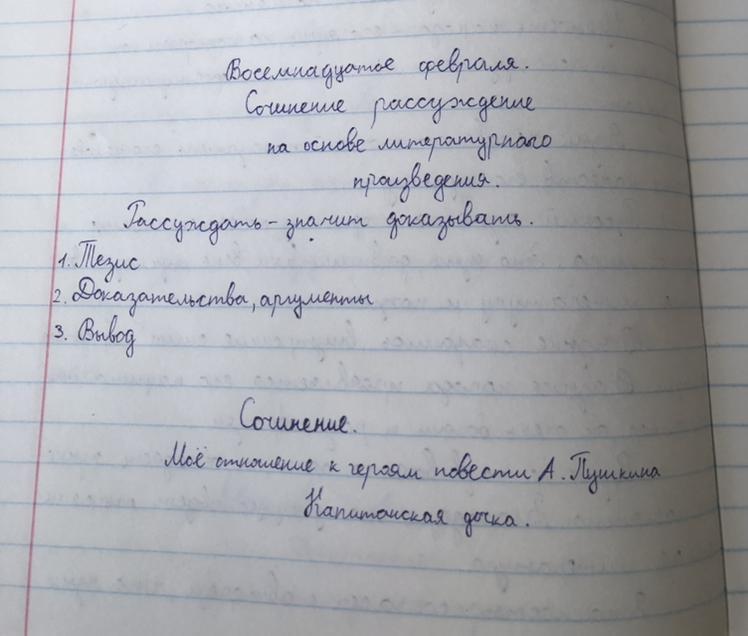 Восемнадцатое февраля.
Сочинение рассуждение
на основе литературного
произведения.
Рассуждать - значит доказывать.
1. Тезис
2. Доказательства, аргументы
3. Вывод
Сочинение.
Моё отношение к героям повести А. Пушкина
Капитанская дочка.